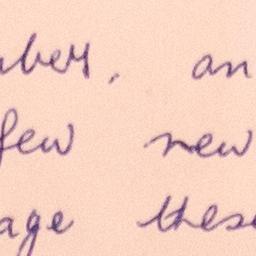 an
few new
age these